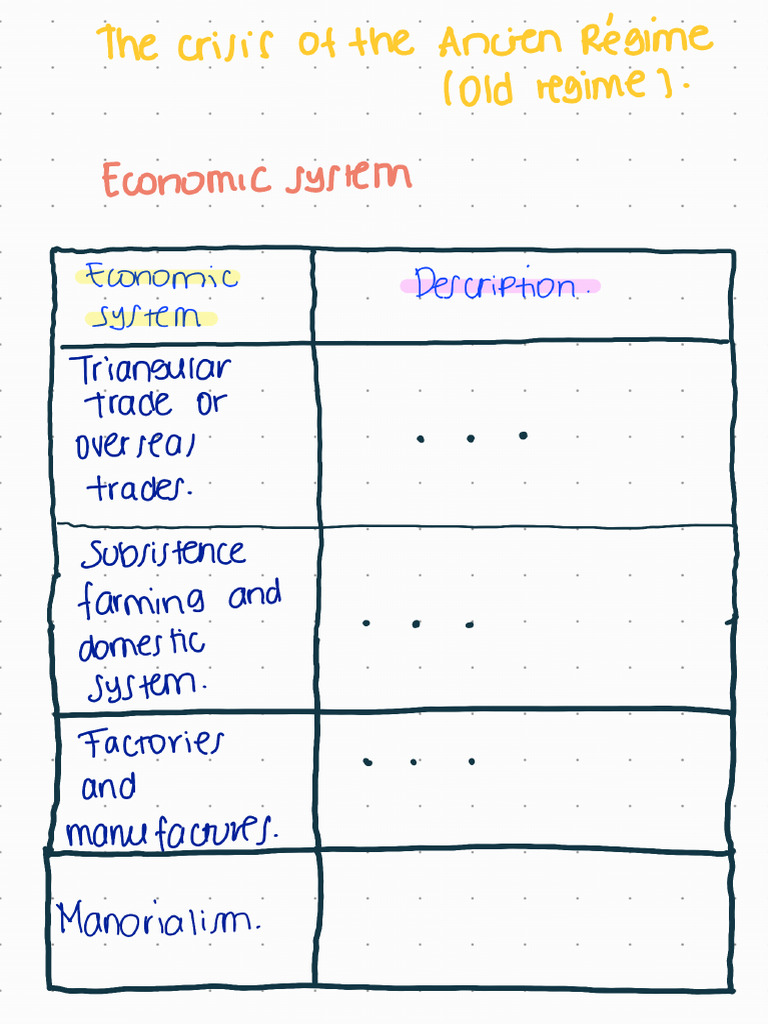 The crisis of the Ancien Régime
(Old regime).
Economic system
Economic
system
Description.
Triangular
trade or
overseas
trades.
. . .
Subsistence
farming and
domestic
system.
. . .
Factories
and
manufactures.
. . .
Manorialism.